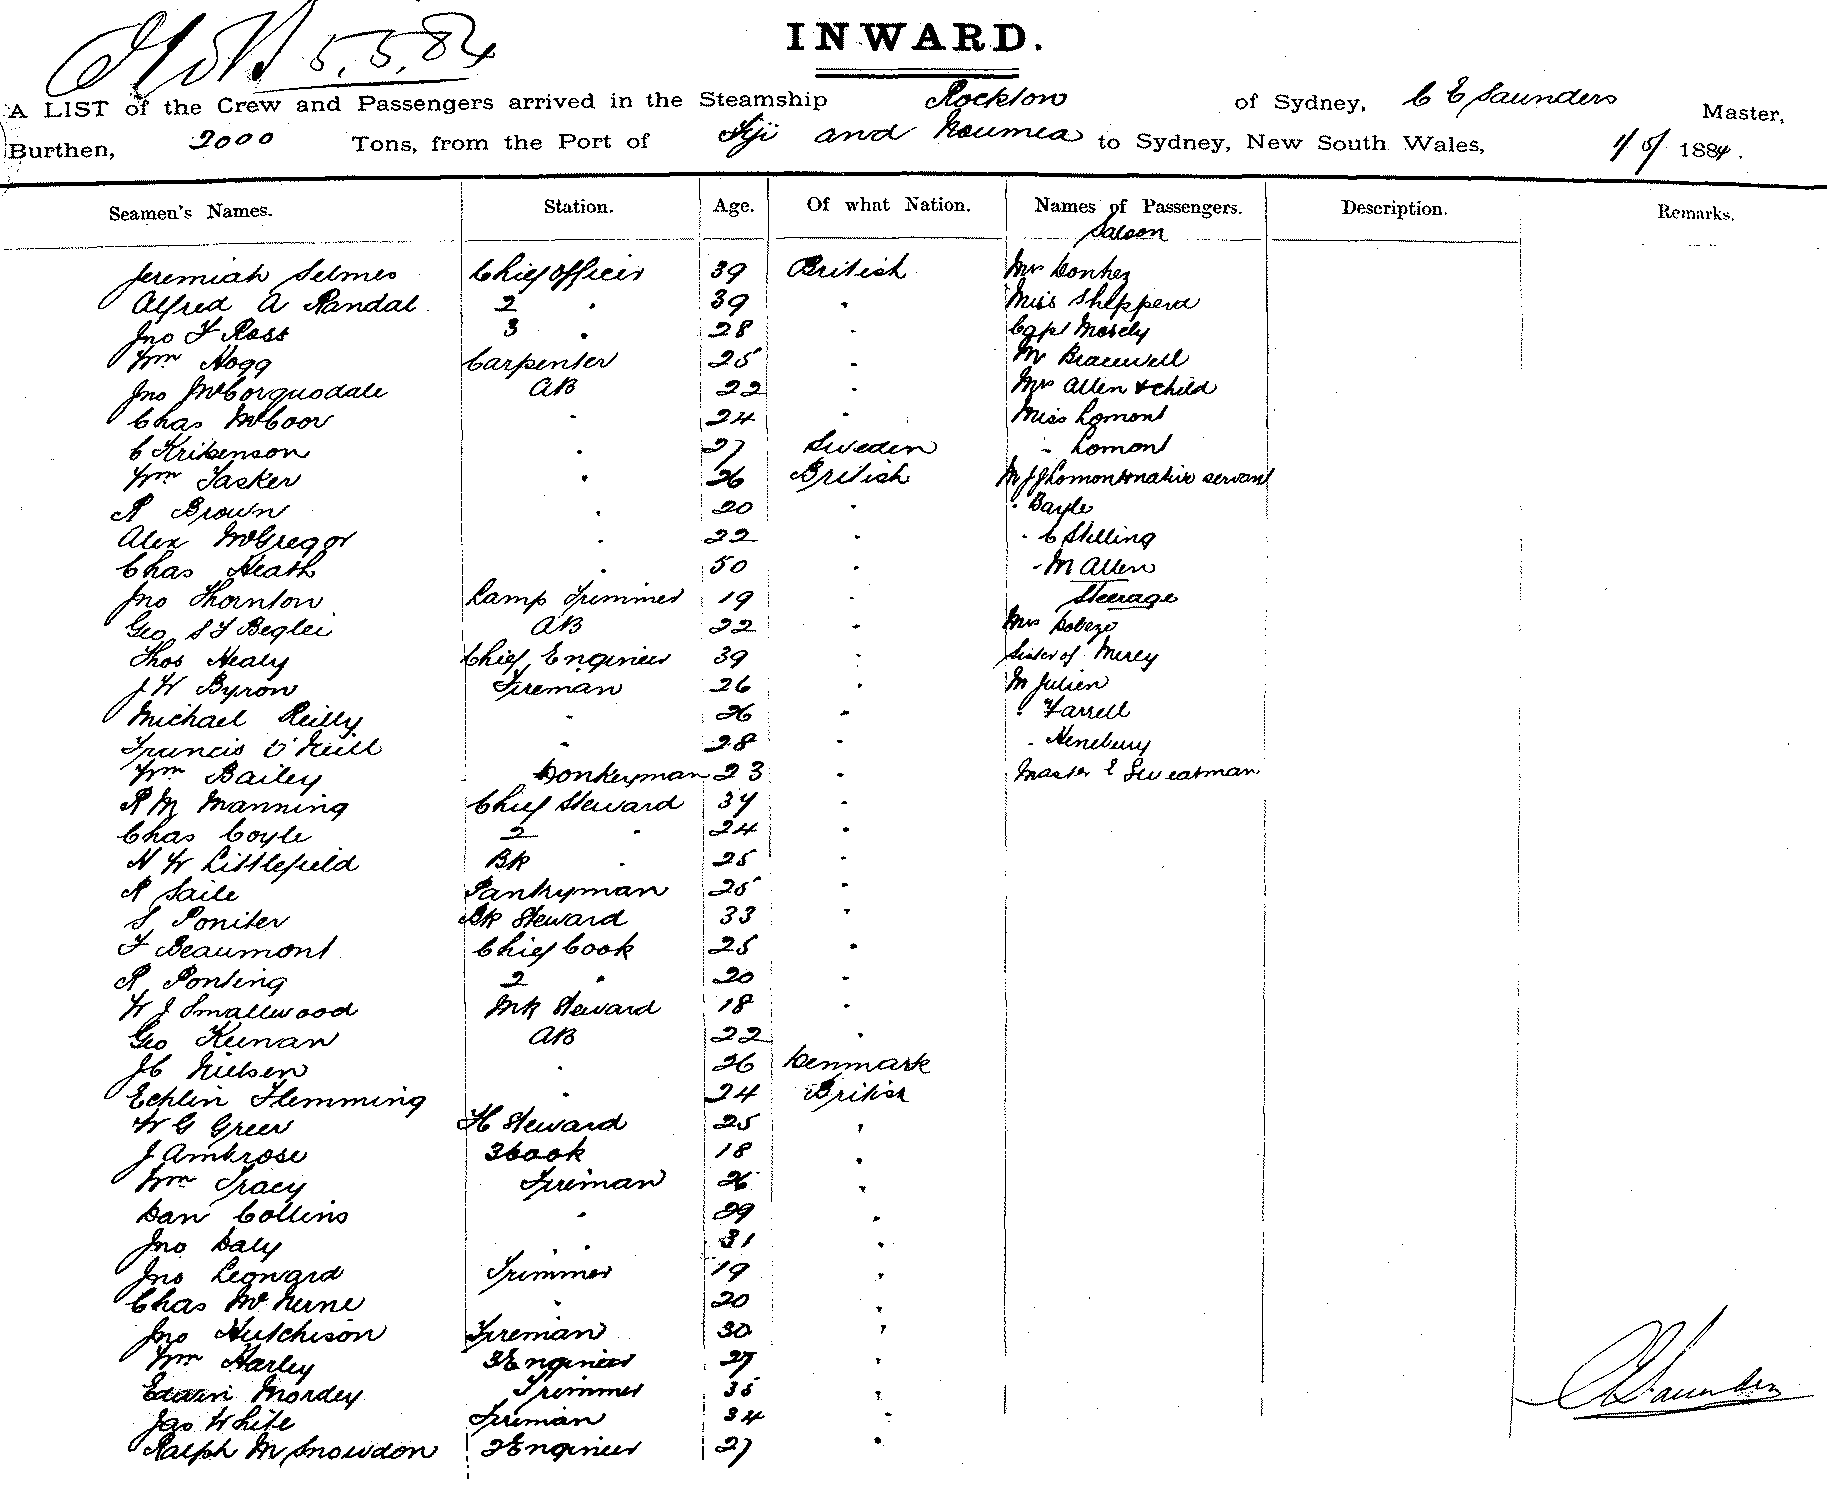 5.5.84
INWARD.
A LIST of the Crew and Passengers arrived in the Steamship Rockton of Sydney, C E Saunders Master,
Burthen, 2000 Tons, from the Port of Fiji and Noumea to Sydney, New South Wales, 1/5/ 1884.
Seamen's Names. Station. Age. Of what Nation. Names of Passengers. Description. Remarks.
Saloon
Jeremiah Selmes Chief Officer 39 British Mrs
Alfred A Randal 2 " 39 " Miss Shepperd
Jno F Ross 3 " 28 " Capt Mosely
Wm Hogg Carpenter 25 " Mr Bracewell
Jno McCorquodale AB 22 " Mrs Allen & child
Chas McCoor " 24 " Miss Lomont
C Kribenson " 27 Sweden " Lomont
Wm Tasker " 26 British M J J Lomont & native servant
R Brown " 20 " " Bayle
Alex McGregor " 22 " " C Stelling
Chas Heath " 50 " " M Allen
Jno Thornton Lamp Trimmer 19 " Steerage
Geo S F Beglei AB 22 " Mrs
Thos Healy Chief Engineer 39 " Sister of Mercy
J W Byron Fireman 26 " M Julien
Michael Reilly " 26 " " Farrell
Francis O'Neill " 28 " " Henebury
Wm Bailey Donkeyman 23 " Master E Sweatman
R M Manning Chief Steward 34 "
Chas Coyle 2 " 24 "
H W Littlefield BK " 25 "
R Saile Pantryman 25 "
S Poniter BK Steward 33 "
F Beaumont Chief Cook 25 "
R Ponting 2 " 20 "
W J Smallwood MR Steward 18 "
Geo Keenan AB 22 "
J C Nielsen " 26 Denmark
Echlin Flemming " 24 British
W G Greer Steward 25 "
J Ambrose 3 Cook 18 "
Wm Tracy Fireman 26 "
Dan Collins " 29 "
Jno Daly " 31 "
Jno Leonard Trimmer 19 "
Chas McNerne " 20 "
Jno Hutchison Fireman 30 "
Wm Harley 3 Engineer 27 "
Edwin Mordey Trimmer 35 "
Jas White Fireman 34 "
Ralph M Snowdon 2 Engineer 27 "
C E Saunders